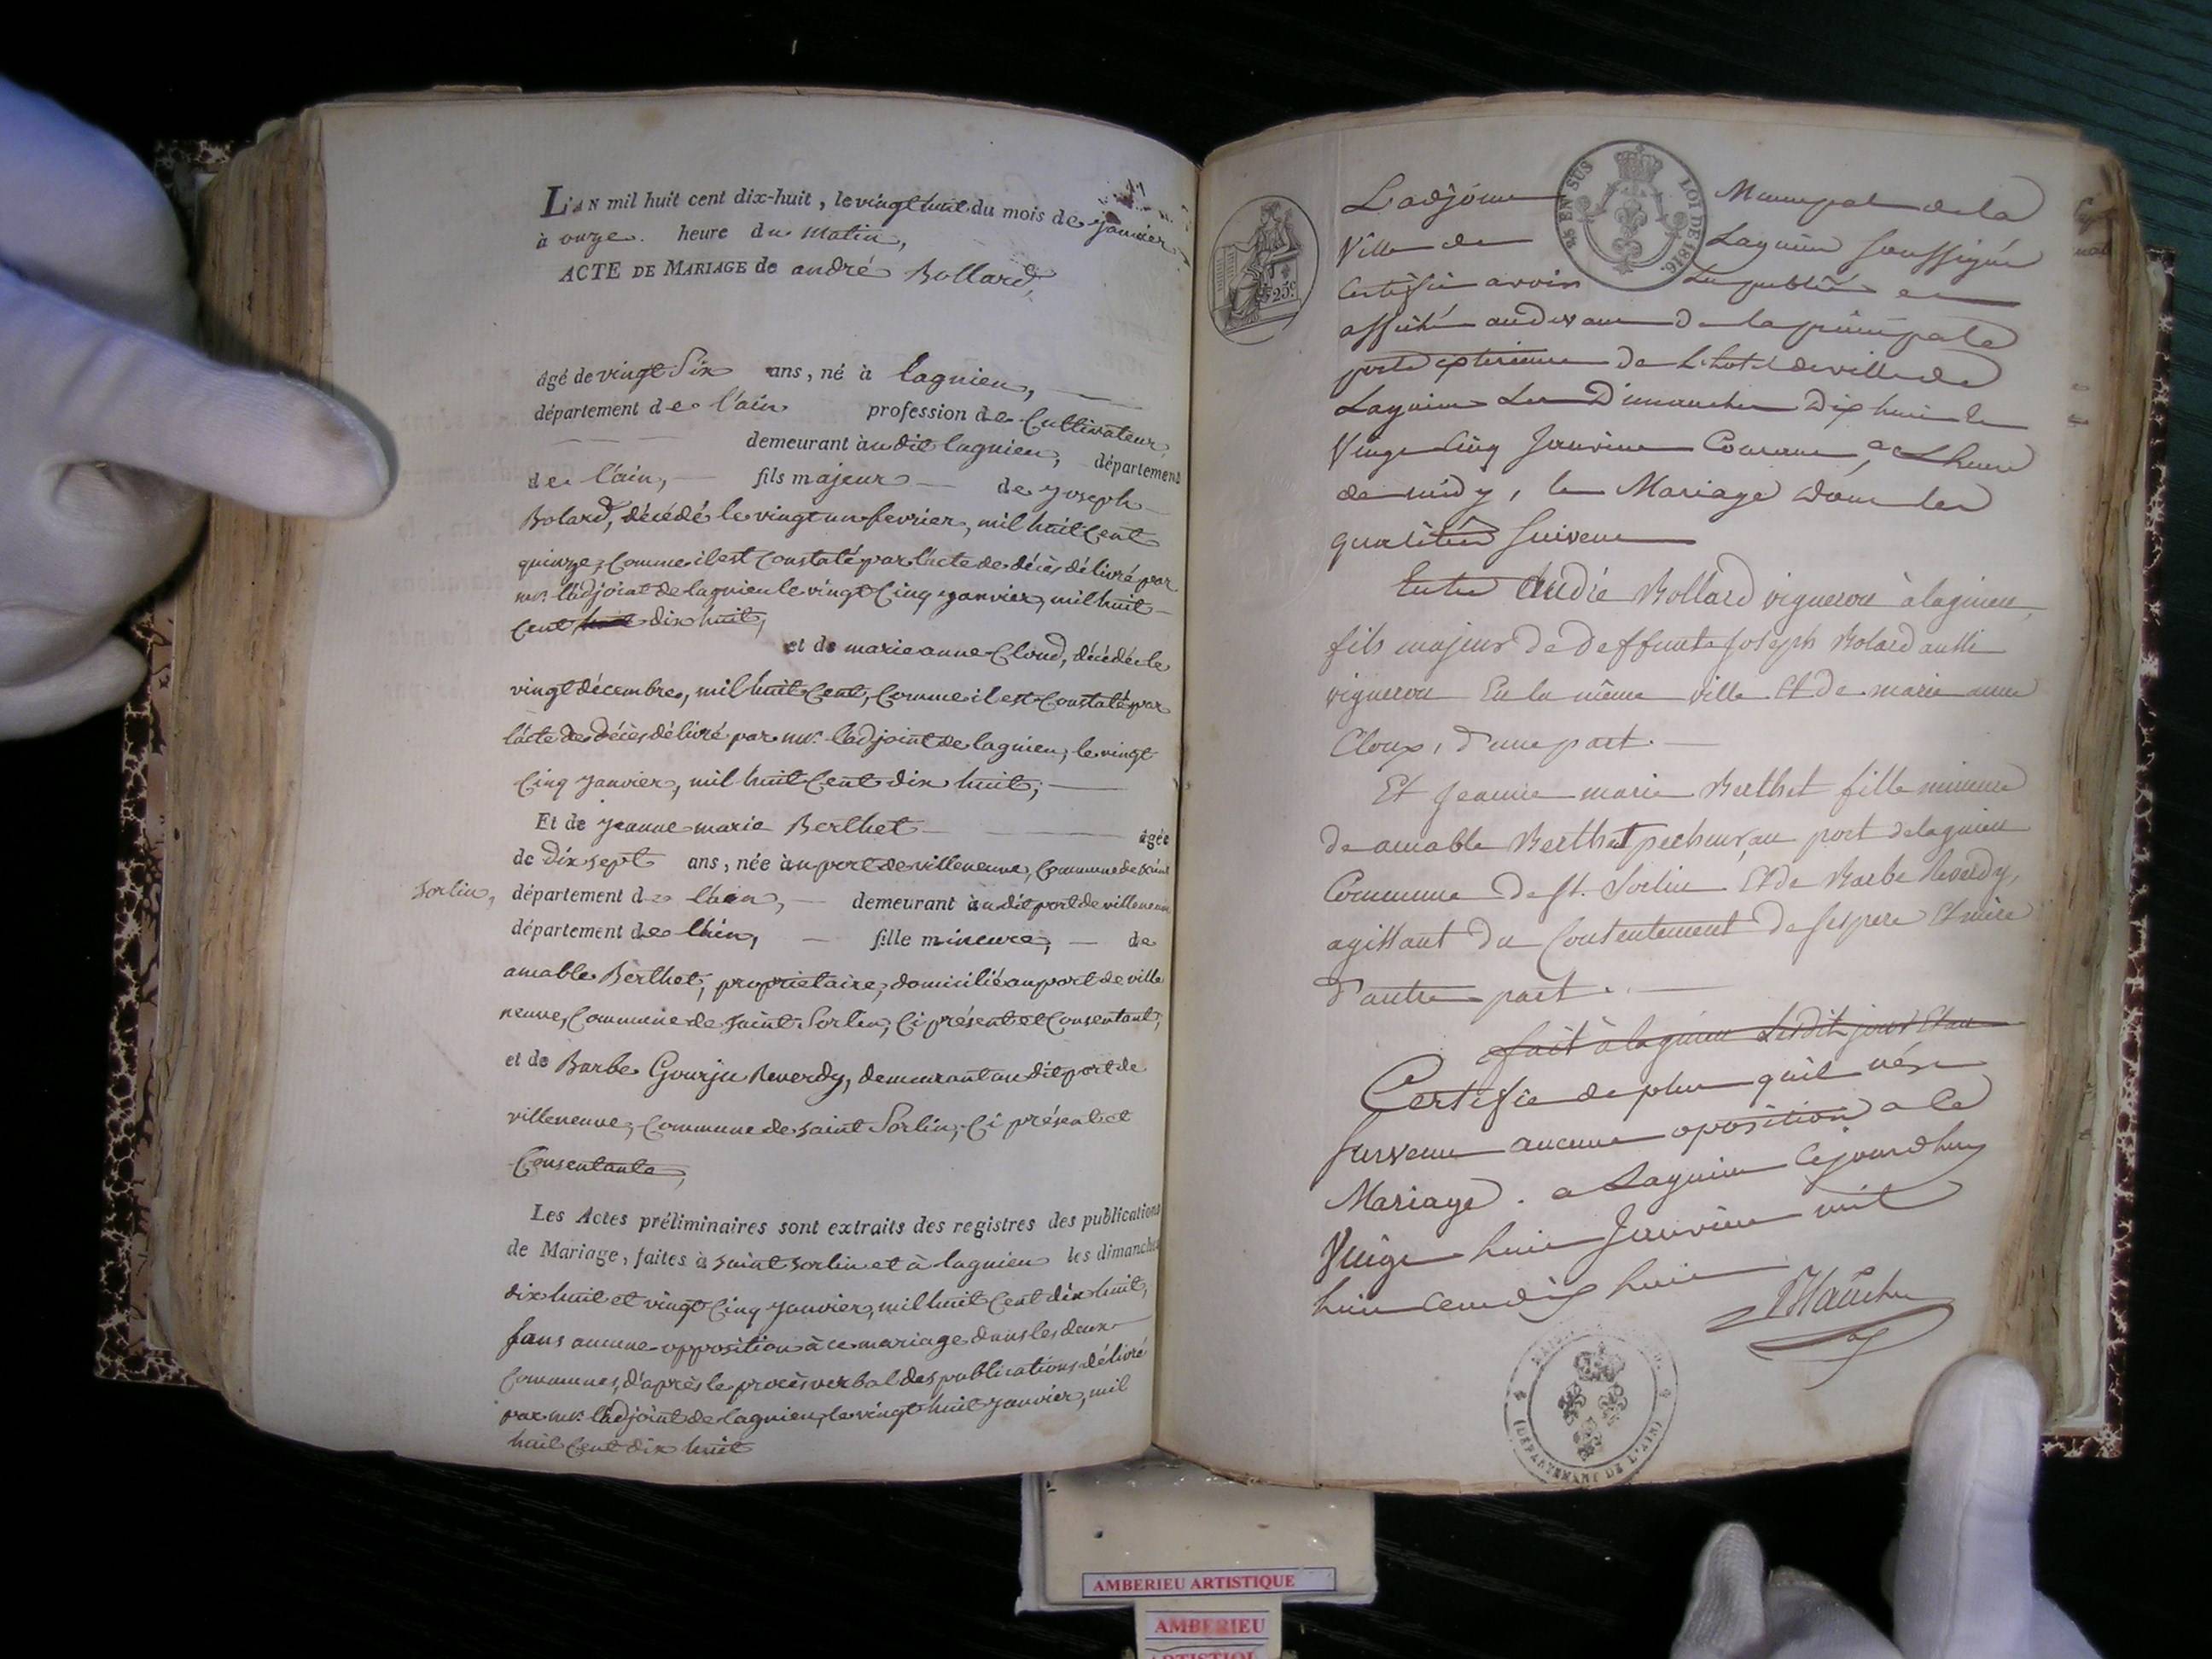 L'AN mil huit cent dix-huit, le vingt huit du mois de janvier
à onze heure du matin,
ACTE DE MARIAGE de andré Bollard,
âgé de vingt Six ans, né à lagnieu,
département de l'ain profession de Cultivateur
demeurant audit lagnieu, département
de l'ain, fils majeur de joseph
Bolard, décédé le vingt un fevrier, mil huit Cent
quinze, Comme il est Constaté par l'acte de décès délivré par
mr. l'adjoint de lagnieu le vingt Cinq janvier, mil huit
Cent dix huit,
et de marie anne Cloud, décédée le
vingt décembre, mil huit Cent, Comme il est Constaté par
l'acte de décès délivré par mr. l'adjoint de lagnieu, le vingt
Cinq janvier, mil huit Cent dix huit,
Et de jeanne marie Berthet âgée
de dix sept ans, née au port de villeneuve, Commune de saint
sorlin, département de l'ain, demeurant audit port de villeneuve
département de l'ain, fille mineure, de
amable Berthet, propriétaire, domicilié au port de ville
neuve, Commune de saint Sorlin, Ci présent et Consentant,
et de Barbe Gourju Reverdy, demeurant audit port de
villeneuve, Commune de saint Sorlin, Ci présente et
Consentante,
Les Actes préliminaires sont extraits des registres des publications
de Mariage, faites à saint sorlin et à lagnieu les dimanches
dix huit et vingt Cinq janvier, mil huit Cent dix huit,
sans aucune opposition à ce mariage dans les deux
Communes, d'après le procès verbal des publications délivré
par mr. l'adjoint de lagnieu, le vingt huit janvier, mil
huit Cent dix huit
25 EN SUS
LOI DE 1816.
25c
L'adjoint Municipal de la
Ville de Lagnieu Soussigné
Certifie avoir Lu publié et
affiché au devant de la principale
porte exterieure de L'hotel de ville de
Lagnieu Les Dimanches Dix huit &
Vingt Cinq Janvier Courant, a L'heure
de midy, le Mariage dont les
qualités suivent
Entre André Bollard vigneron à lagnieu,
fils majeur de deffunt Joseph Bolard aussi
vigneron En la même ville Et de marie anne
Cloux, d'une part.
Et Jeanne marie Berthet fille mineure
de amable Berthet pecheur, au port de lagnieu
Commune de St. Sorlin Et de Barbe Reverdy,
agissant du Consentement de ses pere Et mere
d'autre part.
fait à lagnieu Lesdits jour Et an
Certifie de plus quil n'ést
survenu aucune oposition a le
Mariage. a Lagnieu Cejourdhuy
Vingt huit Janvier mil
huit Cent dix huit
(DÉPARTEMENT DE L'AIN)
AMBERIEU ARTISTIQUE
AMBERIEU
ARTISTIQUE